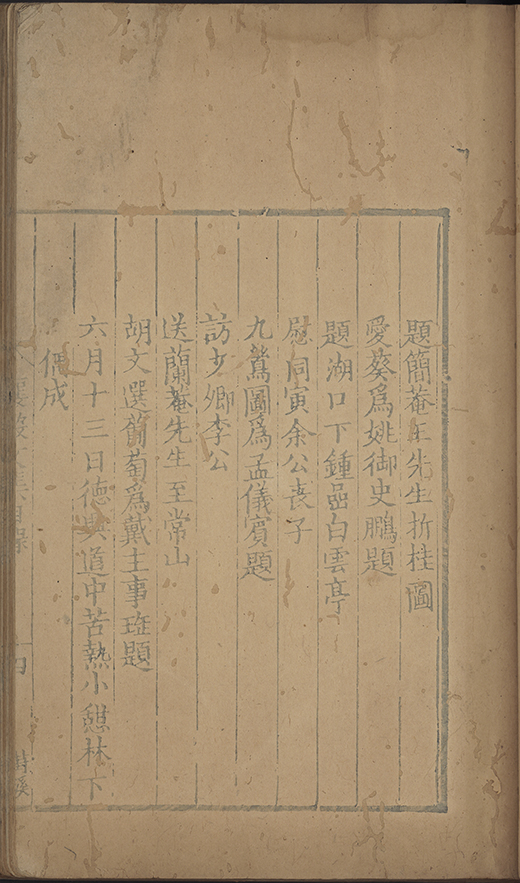 題簡菴王先生折桂圖
愛葵爲姚御史鵬題
題湖口下鍾嵒白雲亭
慰同寅余公喪子
九鷥圖爲孟儀賓題
訪少卿李公
送蘭菴先生至常山
胡文選葡萄爲戴主事珤題
六月十三日德興道中苦熱小憇林下
偶成
目錄
四